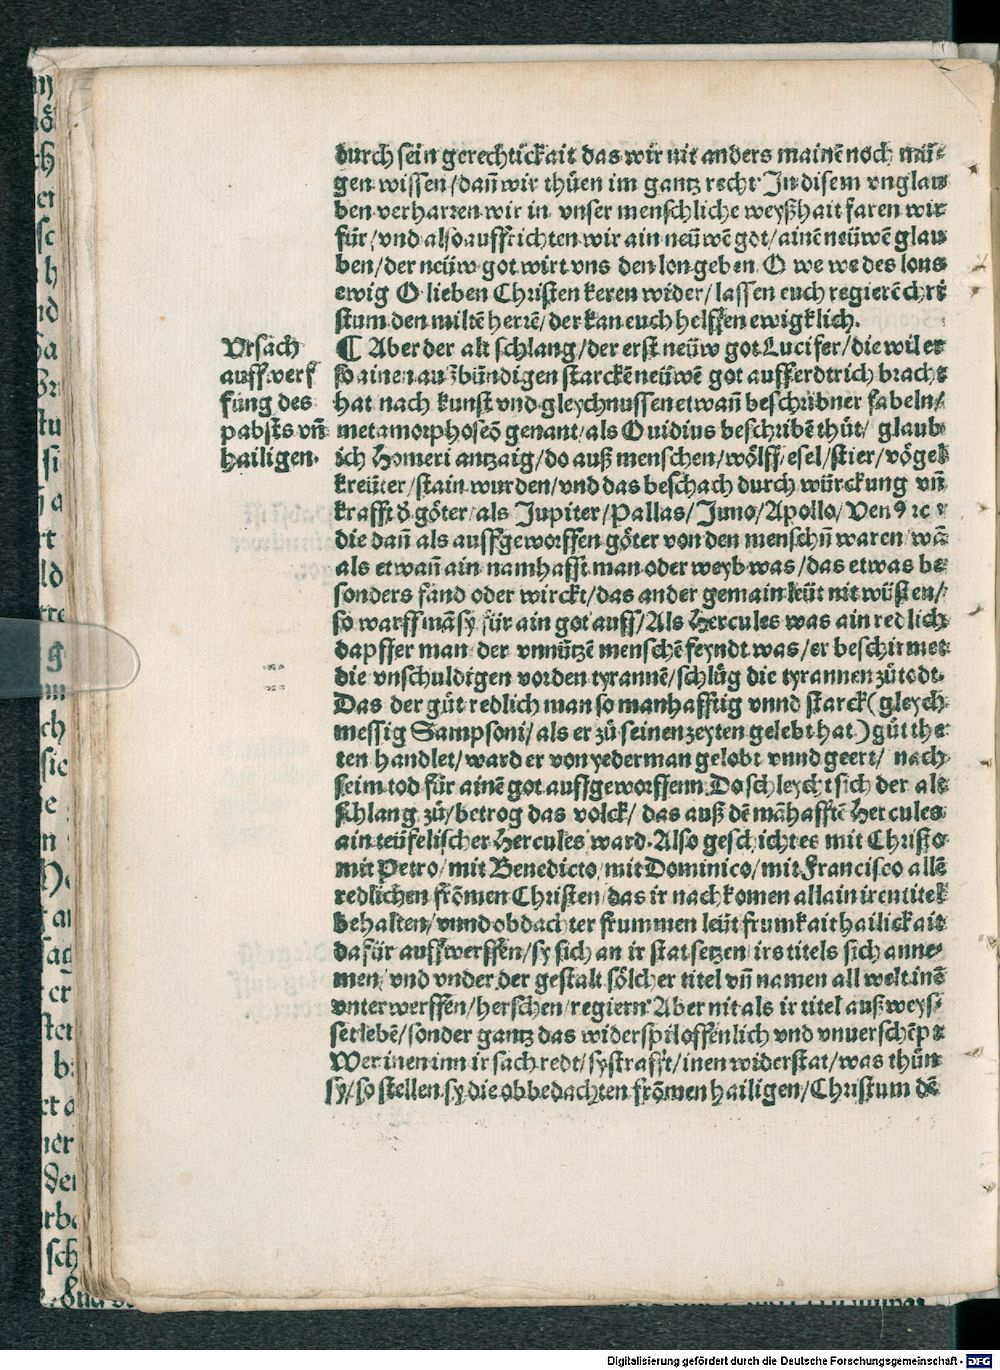 durch sein gerechtickait das wir nit anders mainē noch mü⸗
gen wissen/dañ wir thüen im gantz recht In disem vnglau
ben verharren wir in vnser menschliche weyßhait faren wir
für/vnd also auffrichten wir ain neüwē got/ainē neüwē glau
ben/der neüw got wirt vns den lon geben O we we des lons
ewig O lieben Christen keren wider/lassen euch regierē chri
stum den miltē herrē/der kan euch helffen ewigklich.
Vrsach
auffwerf
fung des
pabsts vñ
hailigen.
¶ Aber der alt schlang/der erst neüw got Lucifer/die wil er
so ainen außbündigen starckē neüwē got aufferdtrich bracht
hat nach kunst vnd gleychnussen etwañ beschribner fabeln/
metamorphoseō genant/als Ouidius beschribē thüt/ glaub
ich Homeri antzaig/do auß menschen/wölff/esel/stier/vögel
kreüter/stain wurden/vnd das beschach durch würckung vñ
krafft ð göter/als Jupiter/Pallas/Juno/Apollo/Venꝰ ꝛc ꝛ
die dañ als auffgeworffen göter von den menschñ waren/wā
als etwañ ain namhafft man oder weyb was/das etwas be
sonders fand oder wirckt/das ander gemain leüt nit wüsten/
so warff mā sy für ain got auff/Als Hercules was ain redlich
dapffer man der vnnützē menschē feyndt was/er beschirmet
die vnschuldigen vor den tyrannē/schlüg die tyrannen zü todt.
Das der güt redlich man so manhafftig vnnd starck(gleych
messig Sampsoni/als er zü seinen zeyten gelebt hat)güt tha
ten handlet/ward er von yederman gelobt vnnd geert/ nach
seim tod für ainē got auffgeworffenn Do schleycht sich der alt
schlang zü/betrog das volck/ das auß dē māhafftē Hercules
ain teüfelischer Hercules ward. Also geschicht es mit Christo
mit Petro/mit Benedicto/mit Dominico/mit Francisco allē
redlichen frōmen Christen/das ir nachkomen allain iren titel
behalten/vnnd obdachter frummen leüt frumkait hailickait
dafür auffwerffen/sy sich an ir stat setzen/irs titels sich anne⸗
men/vnd vnder der gestalt sölcher titel vñ namen all welt inē
vnterwerffen/herschen/regiern Aber nit als ir titel außweys⸗
set lebē/sonder gantz das widerspil offenlich vnd vnuerschēpt
Wer inen inn ir sach redt/sy strafft/inen widerstat/was thün
sy/so stellen sy die obbedachten frōmen hailigen/Christum dē
Digitalisierung gefördert durch die Deutsche Forschungsgemeinschaft - DFG